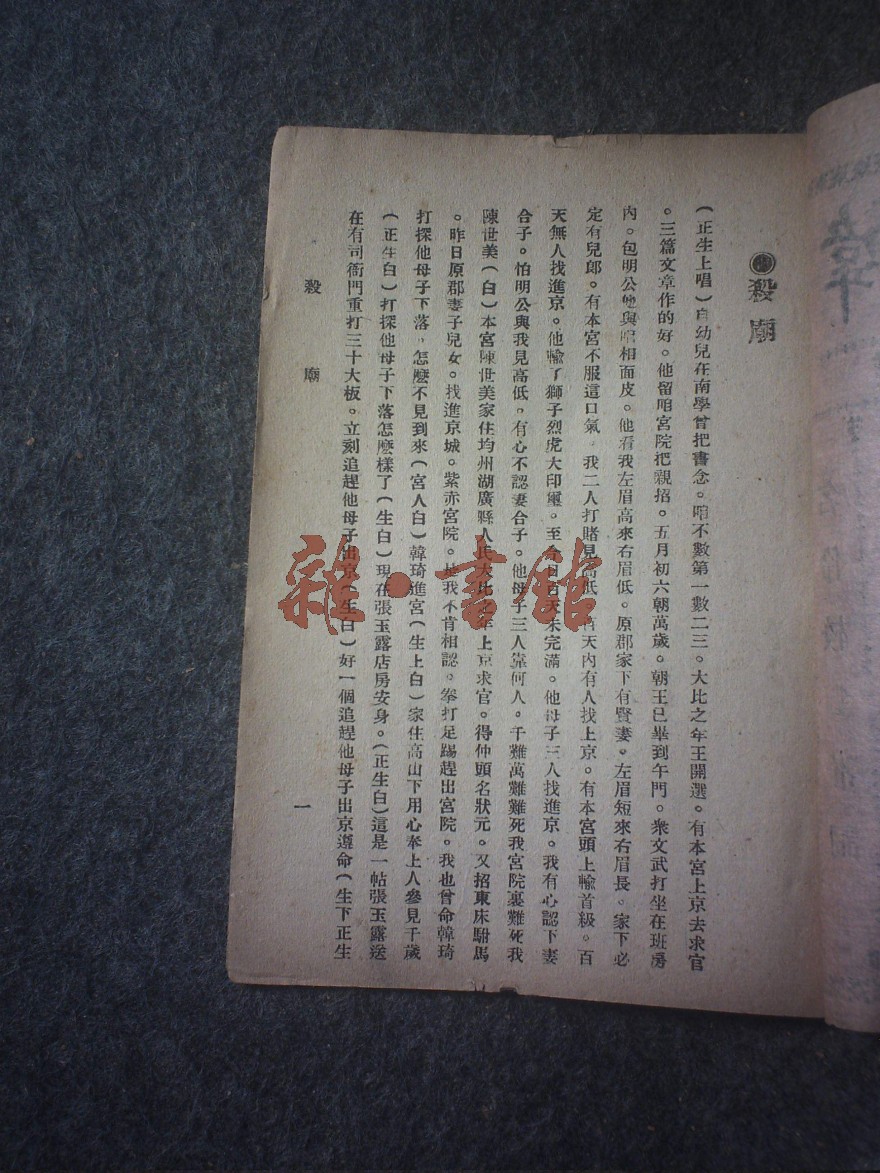 殺廟
(正生上唱)自幼兒在南學曾把書念。咱不數第一數二三。大比之年王開選。有本宮上京去求官
。三篇文章作的好。他留咱宮院把親招。五月初六朝萬歲。朝王已畢到午門。衆文武打坐在班房
內。包明公他與咱相面皮。他看我左眉高來右眉低。原郡家下有賢妻。左眉短來右眉長。家下必
定有兒郎。有本宮不服這口氣。我二人打賭見高低。百天內有人找上京。有本宮頭上輸首級。百
天無人找進京。他輸了獅子烈虎大印璽。至今日百天未完滿。他母子三人找進京。我有心認下妻
合子。怕明公與我見高低。有心不認妻合子。他母子三人靠何人。千難萬難難死我宮院裏難死我
陳世美(白)本宮陳世美家住均州湖廣縣人氏大比之年上京求官。得仲頭名狀元。又招東床駙馬
。昨日原郡妻子兒女。找進京城。紫赤宮院。是我不肯相認。拳打足踢趕出宮院。我也曾命韓琦
打探他母子下落。怎麼不見到來(宮人白)韓琦進宮(生上白)家住高山下用心奉上人參見千歲
(正生白)打探他母子下落怎麼樣了(生白)現在張玉露店房安身。(正生白)這是一帖張玉露送
在有司衙門重打三十大板。立刻追趕他母子出京(生白)好一個追趕他母子出京遵命(生下正生
殺 廟
一
雜·書館